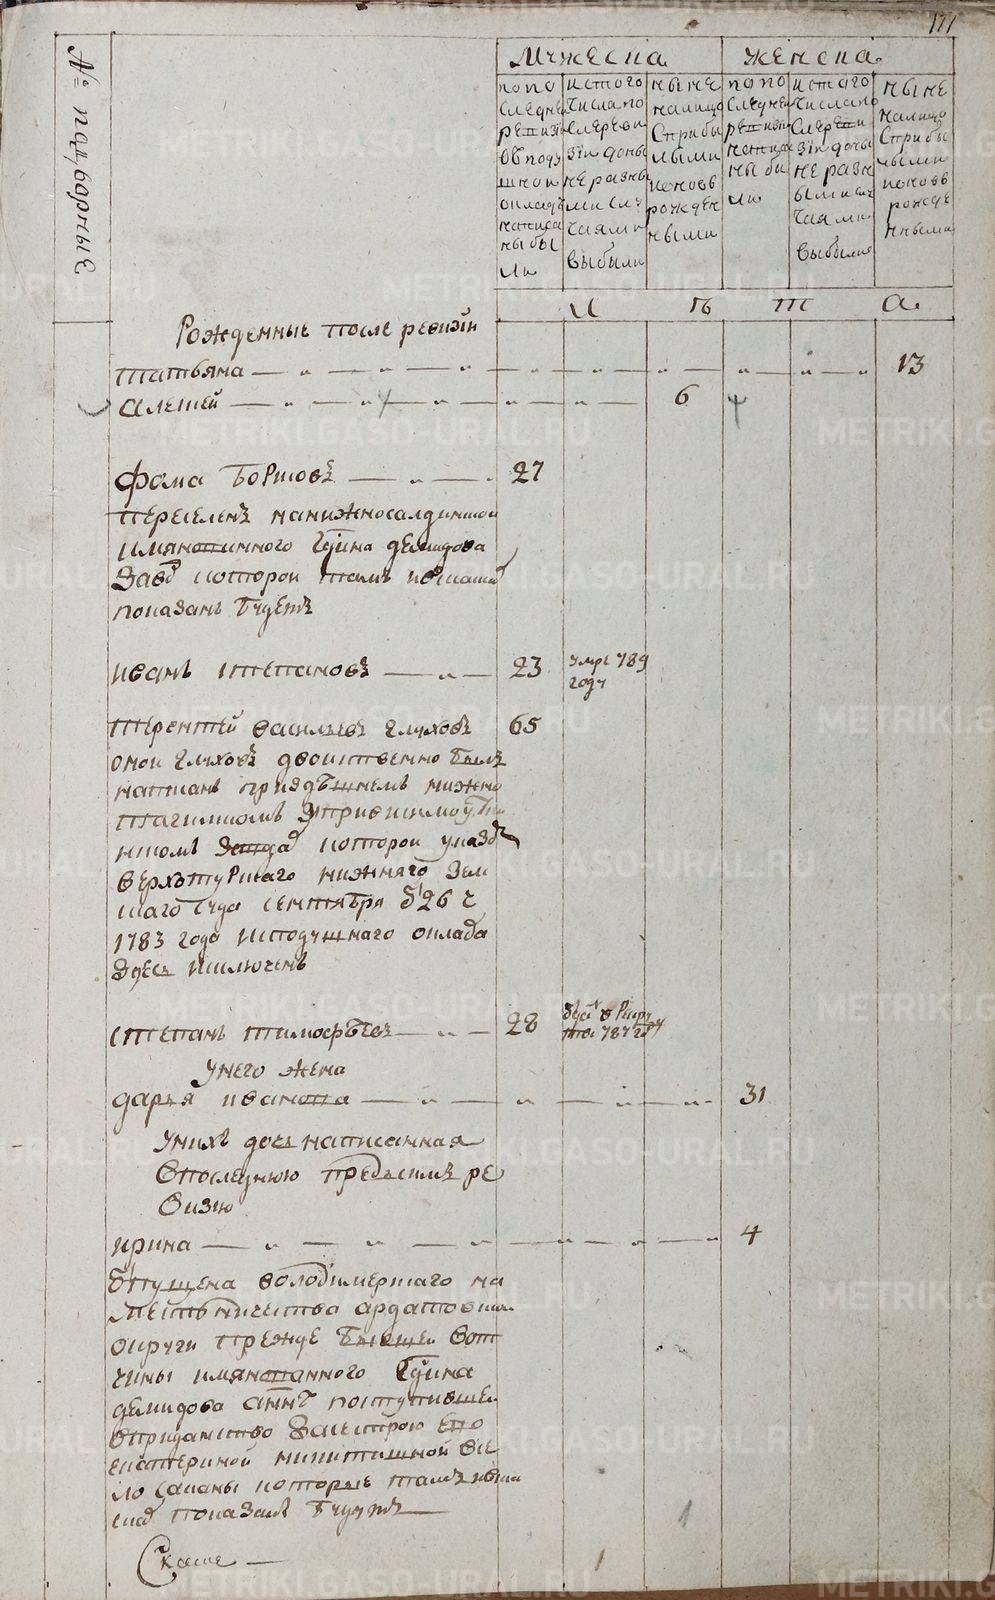 177
№ подворные
Мужеска
Женска
по по
следней
ревизии
в поду
шной
окладъ
написа
ны бы
ли
ис того
числа по
сле реви
зіи до ны
не разны
ми слу
чаями
выбыли
ныне
на лицо
с прибы
лыми
и новв
рожден
ными
по по
следней
ревизіи
написа
ны бы
ли
ис того
числа по
сле реви
зіи до ны
не разн
ыми слу
чаями
выбыли
ныне
на лицо
с прибы
лыми
и новв
рожде
нными
Л ѣ т а
Рожденные после ревизіи
Татьяна 13
Алексей 6
Фома Борисовъ 27
переселенъ на нижносалдинской
имянованного Гдна Демидова
завд которой тамъ и в скаске
показанъ будетъ
Иванъ Степановъ 23 умре 789
году
Терентей Васильевъ Глуховъ 65
оной Глуховъ двойственно былъ
написанъ при здѣшнемъ нижно
тагилскомъ
которой указо
Верхотурскаго нижняго зем
скаго суда сентября 26 ч
1783 года ис подушнаго оклада
здесь исключенъ
Степанъ Тимофѣевъ 28 в рекру
787 году
У него жена
Дарья Иванова 31
У нихъ дочь написанная
в последнюю предъ симъ ре
визию
Ирина 4
отпущена Володимерскаго на
местьничества Ардатовской
округи прежде бывшей вот
чины имянованного Гдина
Демидова Аннѣ поступившей
в приданство за сестрою Ево
Екатериной Никитишной в се
ло Саканы которые тамъ и в ска
ске показаны будутъ